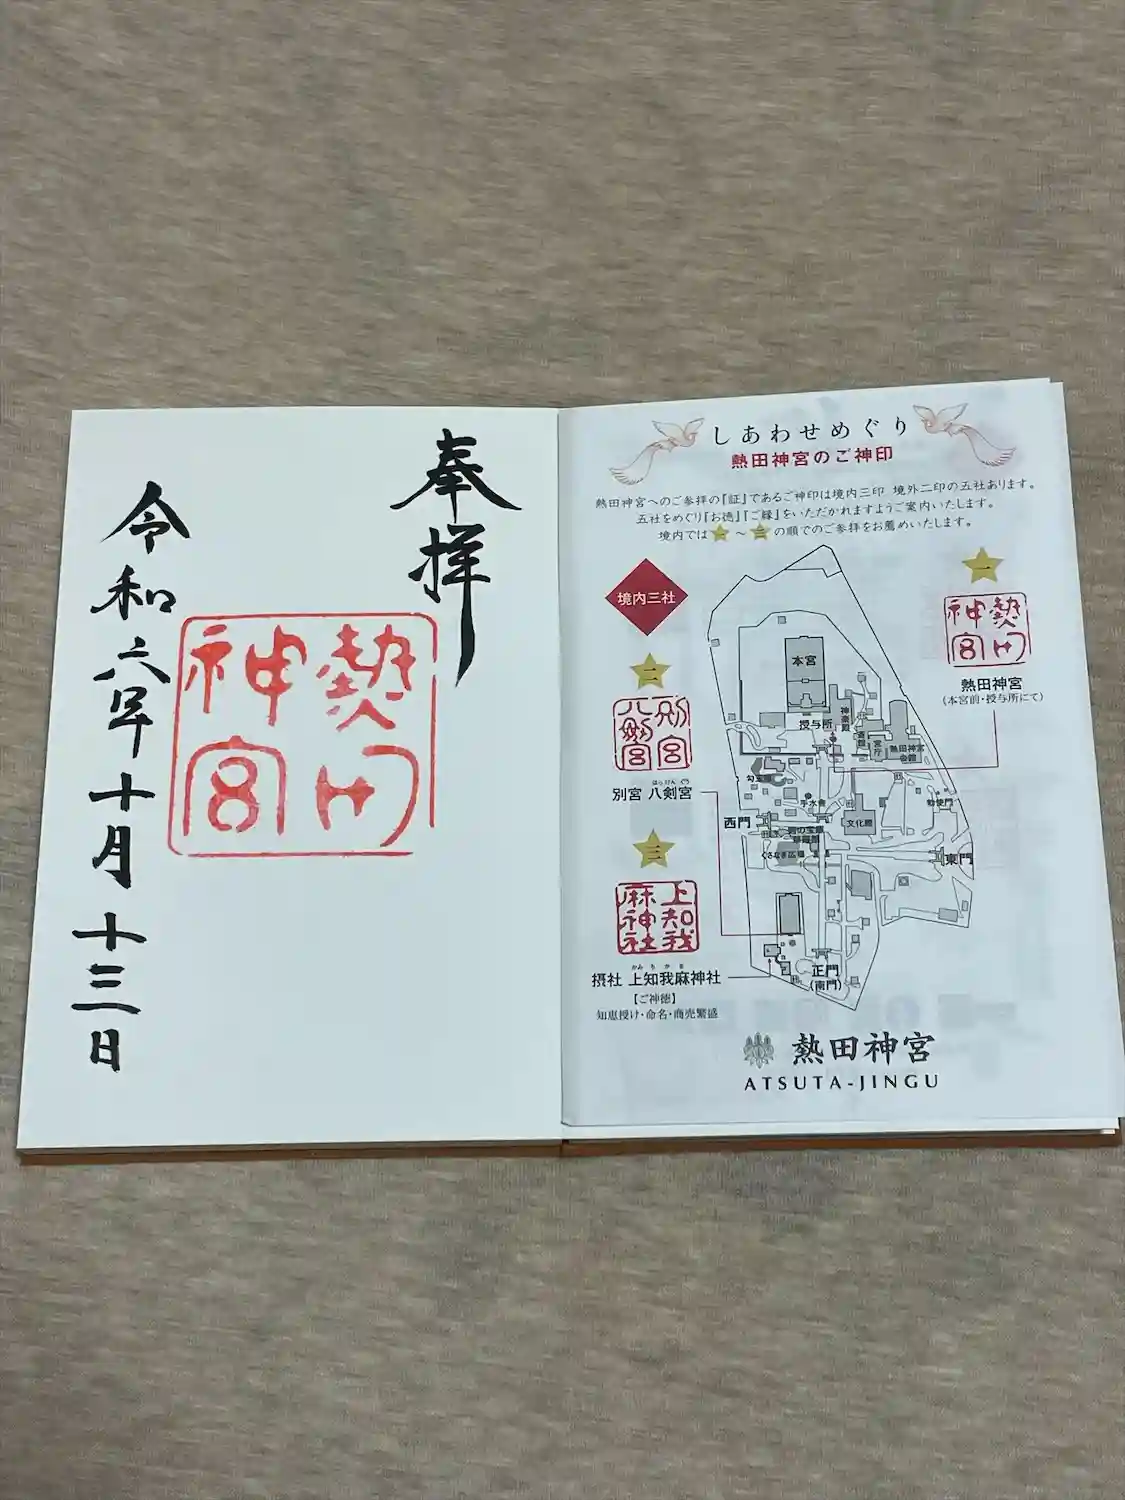 奉拝
熱田神宮
令和六年十月十三日
しあわせめぐり
熱田神宮のご神印
熱田神宮へのご参拝の『証』であるご神印は境内三印 境外二印の五社あります。
五社をめぐり『お徳』『ご縁』をいただかれますようご案内いたします。
境内では一〜三の順でのご参拝をお薦めいたします。
境内三社
一
熱田神宮
熱田神宮
(本宮前・授与所にて)
二
別宮八剣宮
はっけんぐう
別宮 八剣宮
三
上知我麻神社
かみちかま
摂社 上知我麻神社
【ご神徳】
知恵授け・命名・商売繁盛
本宮
授与所
神楽殿
斎館
宮庁
熱田神宮
会館
手水舎
勅使門
文化殿
西門
くさなぎ広場
東門
正門
(南門)
熱田神宮
ATSUTA-JINGU